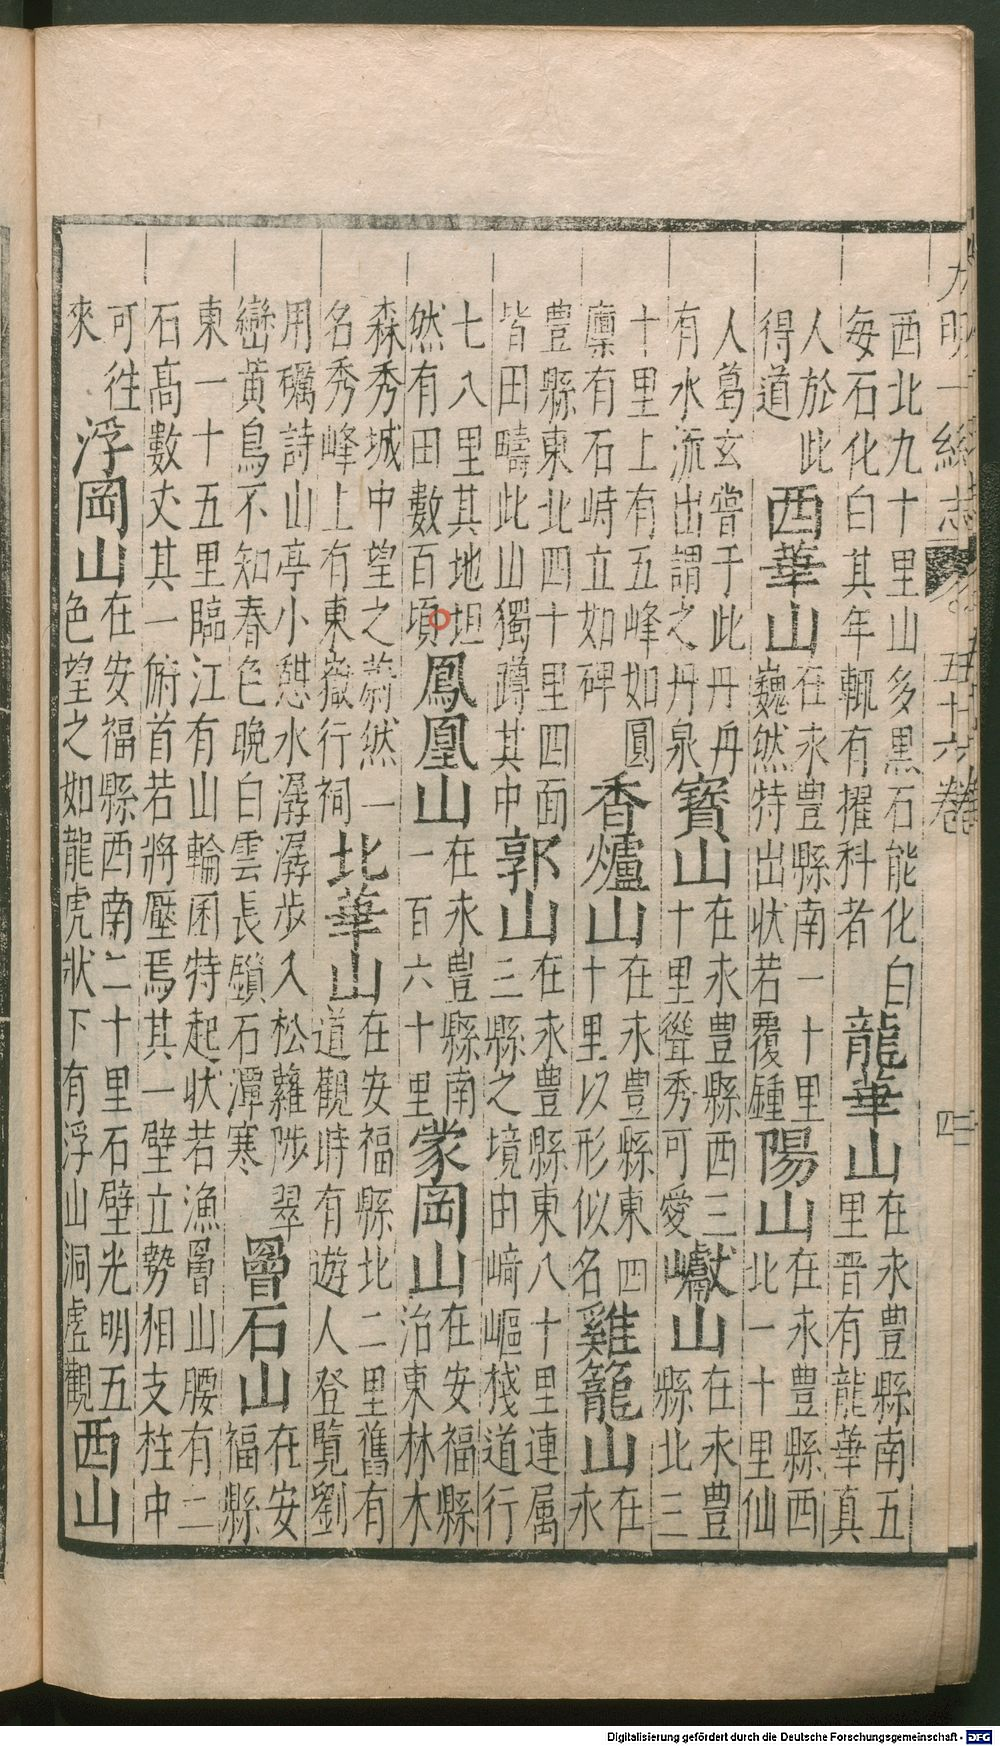 大明一統志 五十六卷
西北九十里山多黒石能化白
每石化白其年輒有擢科者
龍華山
在永豊縣南五
里晋有龍華真
人於此
得道
西華山
在永豊縣南一十里
巍然特出状若覆鍾
陽山
在永豊縣西
北一十里仙
人葛玄嘗于此丹丹
有水流出謂之丹泉
寳山
在永豊縣西三
十里聳秀可愛
巘山
在永豊
縣北三
十里上有五峰如圓
廪有石峙立如碑
香爐山
在永豊縣東四
十里以形似名
雞籠山
在
永
豊縣東北四十里四面
皆田疇此山獨蹲其中
郭山
在永豊縣東八十里連属
三縣之境由﨑嶇棧道行
七八里其地坦
然有田數百頃
鳳凰山
在永豊縣南
一百六十里
蒙岡山
在安福縣
治東林木
森秀城中望之蔚然一
名秀峰上有東嶽行祠
北華山
在安福縣北二里舊有
道觀時有遊人登覽劉
用礪詩山亭小憇水潺潺步入松蘿陟翠
巒黄鳥不知春色晚白雲長鎖石潭寒
罾石山
在安
福縣
東一十五里臨江有山輪囷特起状若漁罾山腰有二
石髙數丈其一俯首若将壓焉其一壁立勢相支柱中
可徃
來
浮岡山
在安福縣西南二十里石壁光明五
色望之如龍虎狀下有浮山洞虚觀
西山
Digitalisierung gefördert durch die Deutsche Forschungsgemeinschaft - DFG